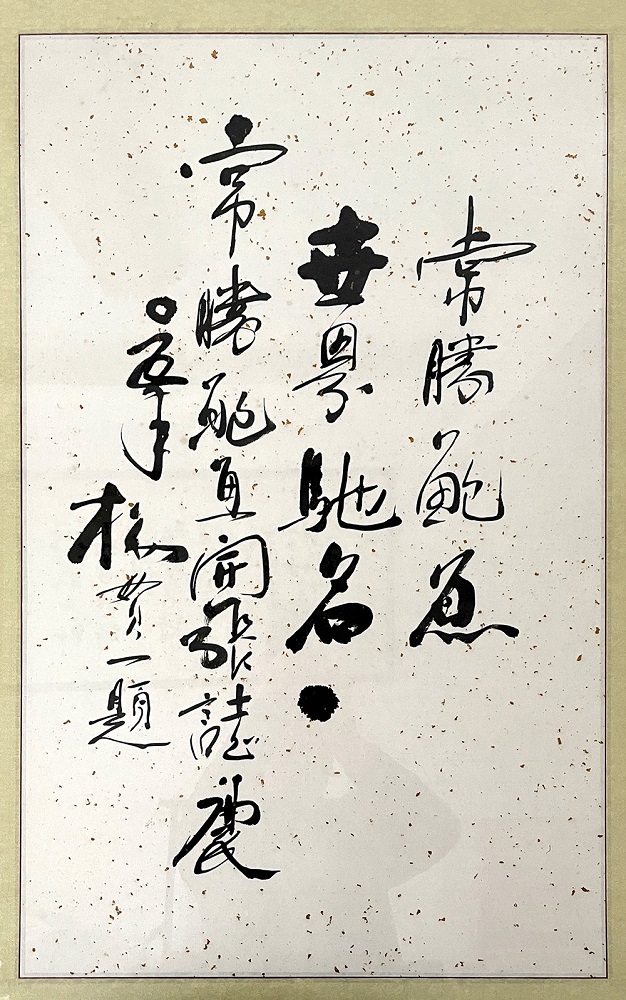 常勝鮑魚
世界馳名
常勝鮑魚開張誌慶
楊貫一題